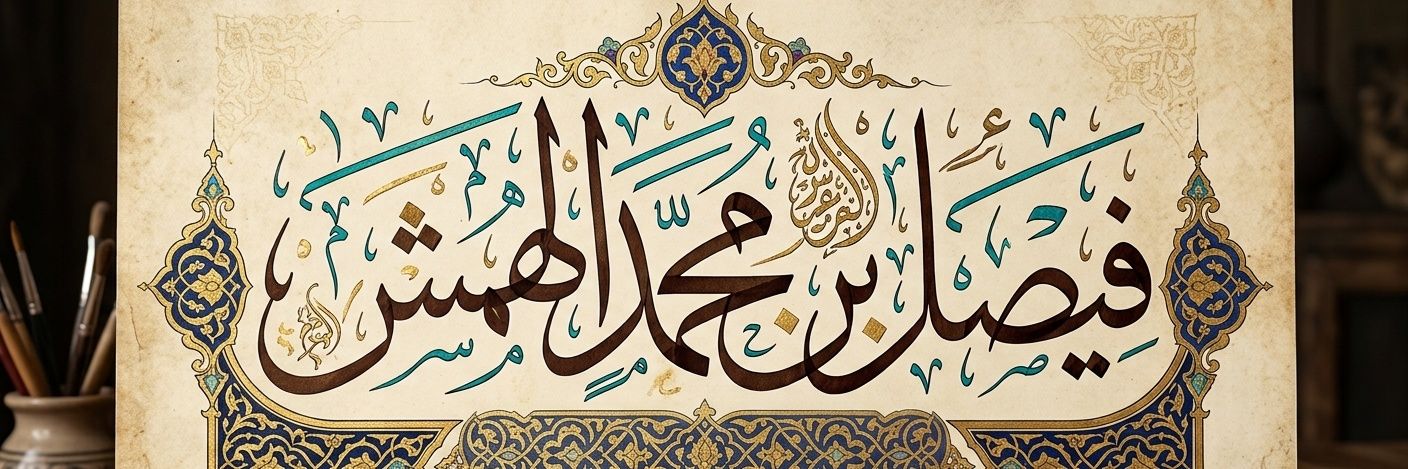 فيصل بن محمد الهمش